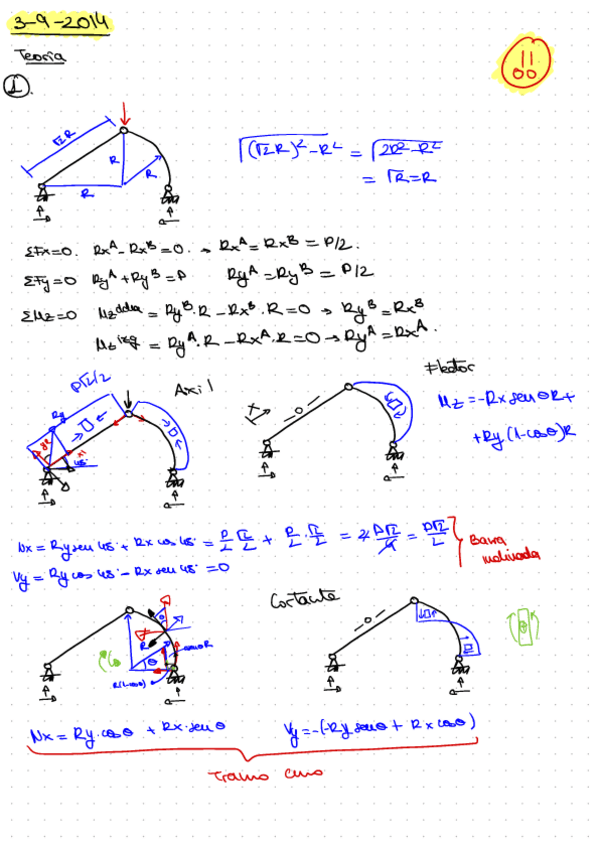 3-9-2014
!!
Teoría
1.
√2 R
R
R
R
√((√2R)² - R²) = √(2R² - R²)
= √R² = R
ΣFx=0. RxA - RxB = 0. → RxA = RxB = P/2.
ΣFy=0 RyA + RyB = P RyA = RyB = P/2
ΣMz=0 Mz dcha = RyB·R - RxB·R = 0 → RyB = RxB
Mz izq = RyA·R - RxA·R = 0 → RyA = RxA.
P√2/2
Axil
Flector
Ry
45°
Mz = -Rx senθR +
+ Ry(1-cosθ)R
Nx = Ry sen 45° + Rx cos 45° = P/2 √2/2 + P/2 · √2/2 = 2 P√2/4 = P√2/2
Vy = Ry cos 45° - Rx sen 45° = 0
Barra
inclinada
Cortante
R
θ
R(1-cosθ)
senθ R
Nx = Ry·cosθ + Rx·senθ
Vy = -(-Ry senθ + Rx cosθ)
Tramo curvo